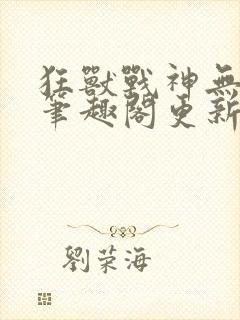 狂獸戰神無
筆趣閣更新
劉荣海